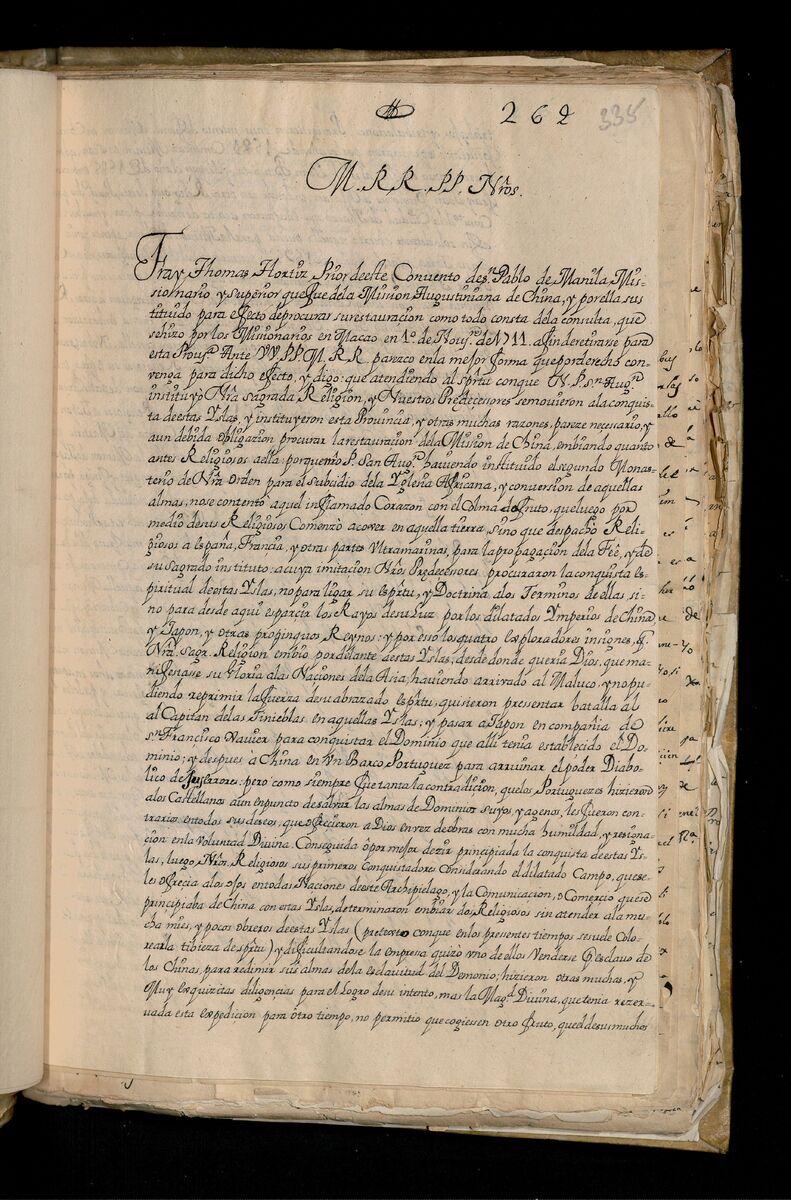 262 335
M. R. R. P.P. Nr̃os.
Fray Thomas Hortiz Prior deeste Convento de sn. Pablo de Manila, Mis-
sionario y superior que fue dela Mision Augustiniana de China, y por ella sus
tituido para efecto de procurar su restauracion como todo consta dela consulta, que
se hizo por los Missionarios en Macao en 1º. de Nou.re de 1711. a fin de retirarse para
esta Prou.ª Ante VV. P.P. M. R R. parezco en la mejor forma que por derecho con-
venga para dicho efecto, y digo: que atendiendo al sp̃rtu conque N. P. sn. Aug.n
instituyò Nr̃a sagrada Religion, y Nuestros Predecesores se movieron ala conquis-
ta de estas Yslas, y instituyeron esta Provincia, y otras muchas razones, pareze necesario, y
aun debida obligazion procurar la restauracion dela Mision de China, embiando quanto
antes Religiosos aella: porque nr̃o P. San Aug.n haviendo instituido el segundo Monas-
terio de Nr̃a Orden para el subsidio dela Yglesia Africana, y conversion de aquellas
almas, no se contentò aquel inflamado Corazon con el Colmado fruto, que luego por
medio de sus Religiosos Comenzò acoxer en aquella tierra, sino que despachò Reli-
giosos a España, Francia, y otras partes Ultramarinas, para la propagacion dela Feê, y de
su sagrado instituto: acuya imitacion Nr̃os Predecesores procuraron la conquista es-
piritual de estas Yslas, no para ligar su esp̃rtu, y Doctrina alos Terminos de ellas, si-
no para desde aqui esparcir los Rayos desu Luz por los dilatados Ymperios de China
y Japon, y otras propinquos Reynos: y por esso los quatro exploradores insignes, q̃.
Nr̃a Sagr. Religion embiò por delante a estas Yslas, desde donde queria Dios, que ma-
nifestase su Gloria alas Naciones dela Asia; haviendo arrivado al Maluco, y no pu-
diendo reprimir la fuerza desu abrazado esp̃rtu, quisieron presentar batalla al
al Capitan delas Tinieblas en aquellas Yslas; y pasar a Japon en compañia de
sn. Francisco Xavier para conquistar el Dominio que alli tenia establecido el Do-
minio; y despues a China en Vn Barco Portuguez para arruinar el poder Diabo-
lico de sus errores: pero como siempre fue tanta la contradicion, quelos Portuguezes hizieron
alos Castellanos aun en puncto de salvar las almas de Dominios suyos, y agenos, les fueron con-
trarios en todos sus deseos, que ofrecieron a Dios en vez de obras con mucha humildad, y resigna-
cion en la voluntad Divina. Conseguida ô por mejor dezir principiada la conquista de estas Ys-
las, luego Nr̃os. Religiosos sus primeros Conquistadores Considerando el dilatado Campo, que se
les ofrecia alos ojos en todas Naciones deeste Archipielago, y la Comunicacion, o Comercio que se
principiaba de China con estas Yslas, determinaron embiar dos Religiosos sin atender ala mu-
cha mies, y pocos obreros de estas Yslas (pretexto conque en los presentes tiempos se suele Colo-
rear la tibieza de sp̃rtu) y dificultandose la empresa quizo uno de ellos Venderse p.r Esclavo de
los Chinas, para redimir sus almas dela esclavitud del Demonio; hizieron otras muchas, y
Muy exquizitas diligencias para el Logro desu intento, mas la Mag.d Divina, que tenia rezer-
vada esta expedicion para otro tiempo, no permitio que cogiesen otro fruto, que el desus muchos